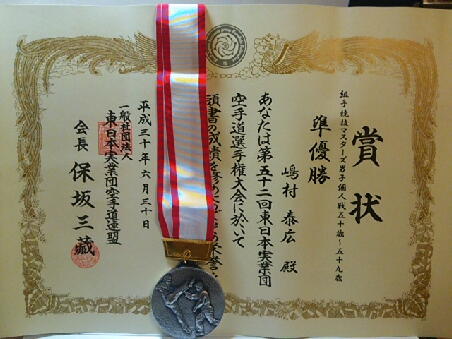 賞状
組手競技マスターズ男子個人戦五十歳～五十九歳
準優勝
嶋村泰広 殿
あなたは第五十二回東日本実業団
空手道選手権大会に於いて
頭書の成績を修め
平成三十年六月三十日
一般社団法人
東日本実業団空手道連盟
会長 保坂三蔵